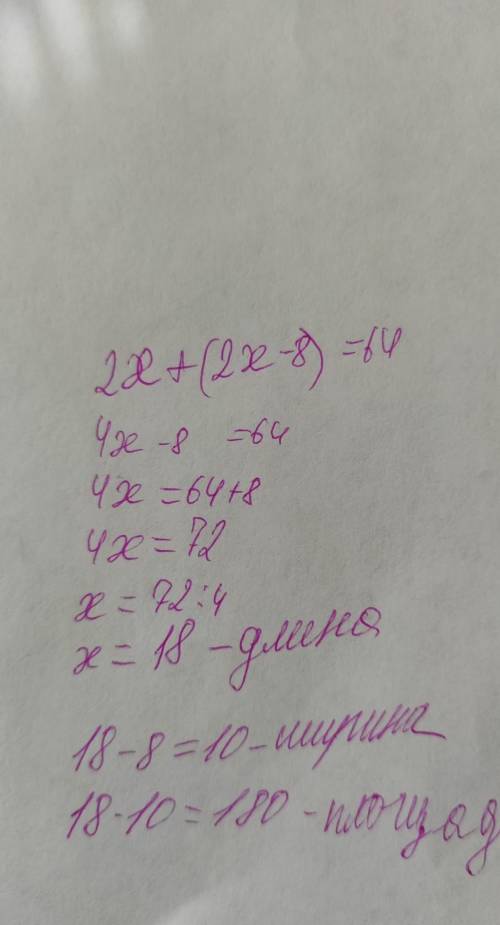 2x+(2x-8)=64
4x-8 =64
4x=64+8
4x=72
x=72:4
x=18-длина
18-8=10-ширина
18·10=180-площад